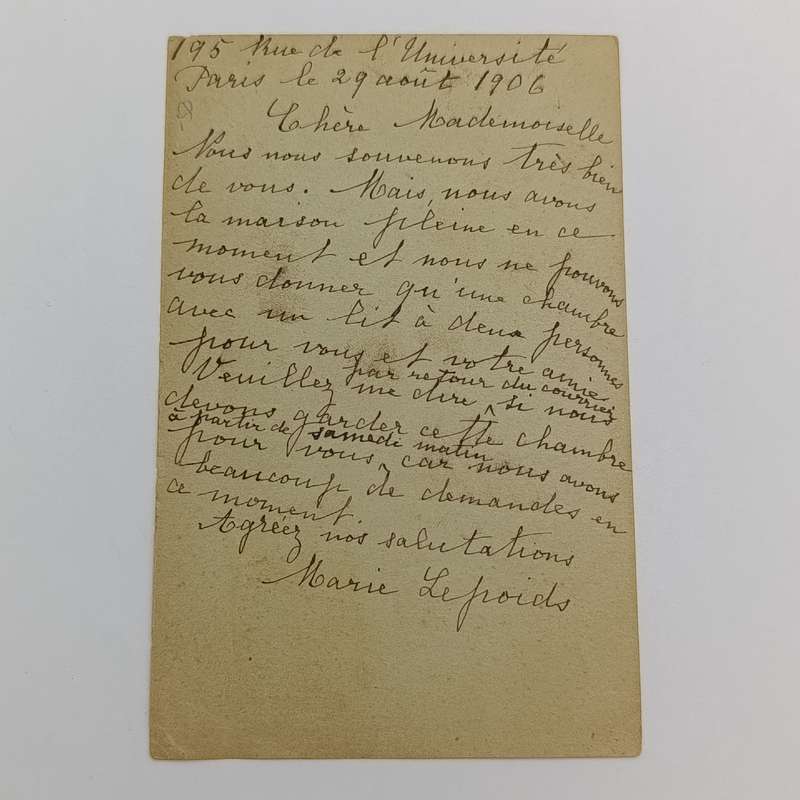 195 Rue de l'Université
Paris le 29 août 1906
Chère Mademoiselle
Nous nous souvenons très bien
de vous. Mais, nous avons
la maison pleine en ce
moment et nous ne pouvons
vous donner qu'une chambre
avec un lit à deux personnes
pour vous et votre amie
par retour du courrier
Veuillez me dire, si nous
devons garder cette chambre
à partir de samedi matin
pour vous, car nous avons
beaucoup de demandes en
ce moment.
Agréez nos salutations
Marie Lepoids